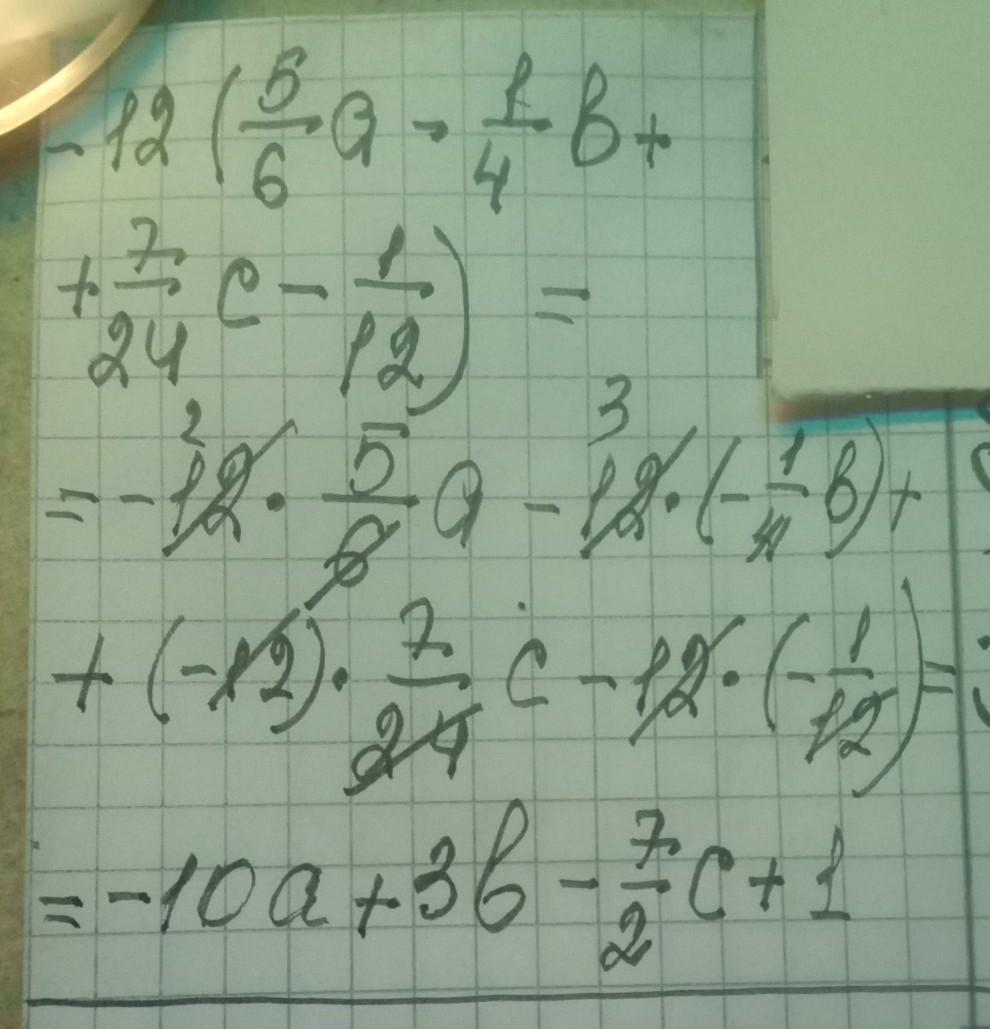 -12 (5/6 a - 1/4 b +
+ 7/24 c - 1/12) =
= - 12 · 5/6 a - 12 · (- 1/4 b) +
2 3
+ (-12) · 7/24 c - 12 · (- 1/12) =
= -10a + 3b - 7/2 c + 1